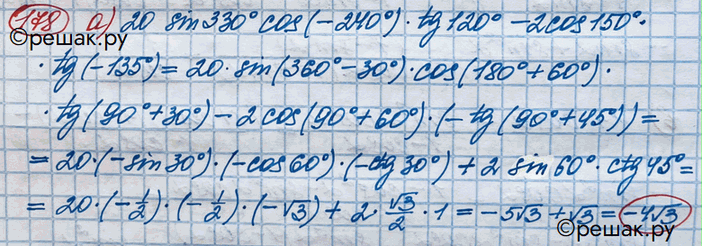 178 а) 20 sin 330° cos(-240°) · tg 120° - 2cos 150° ·
· tg(-135°) = 20 · sin(360° - 30°) · cos(180° + 60°) ·
· tg(90° + 30°) - 2 cos(90° + 60°) · (-tg(90° + 45°)) =
= 20 · (-sin 30°) · (-cos 60°) · (-ctg 30°) + 2 sin 60° · ctg 45° =
= 20 · (-1/2) · (-1/2) · (-√3) + 2 · √3/2 · 1 = -5√3 + √3 = -4√3
©решак.ру
©решак.ру
©решак.ру